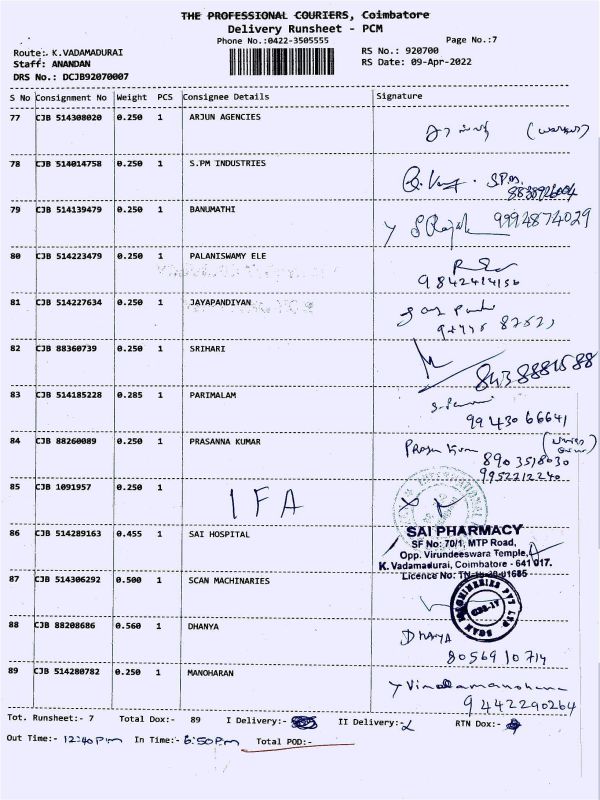 THE PROFESSIONAL COURIERS, Coimbatore
Delivery Runsheet - PCM
Phone No.:0422-3505555
Page No.:7
Route:- K.VADAMADURAI
RS No.: 920700
Staff: ANANDAN
RS Date: 09-Apr-2022
DRS No.: DCJB92070007
S No Consignment No Weight PCS Consignee Details Signature
77 CJB 514308020 0.250 1 ARJUN AGENCIES
78 CJB 514014758 0.250 1 S.PM INDUSTRIES
79 CJB 514139479 0.250 1 BANUMATHI
9994874029
80 CJB 514223479 0.250 1 PALANISWAMY ELE
9842414156
81 CJB 514227634 0.250 1 JAYAPANDIYAN
82 CJB 88360739 0.250 1 SRIHARI
83 CJB 514185228 0.285 1 PARIMALAM
99430 66641
84 CJB 88260089 0.250 1 PRASANNA KUMAR
8903518030
9952212240
85 CJB 1091957 0.250 1 IFA
86 CJB 514289163 0.455 1 SAI HOSPITAL
SAI PHARMACY
SF No: 70/1, MTP Road,
Opp. Virundeeswara Temple,
K. Vadamadurai, Coimbatore - 641 017.
Licence No:
87 CJB 514306292 0.500 1 SCAN MACHINARIES
88 CJB 88208686 0.560 1 DHANYA
DHANYA
8056910714
89 CJB 514280782 0.250 1 MANOHARAN
9442290264
Tot. Runsheet:- 7 Total Dox:- 89 I Delivery:- II Delivery:- RTN Dox:-
Out Time:- 12:40 Pm In Time:- 6:50 Pm Total POD:-